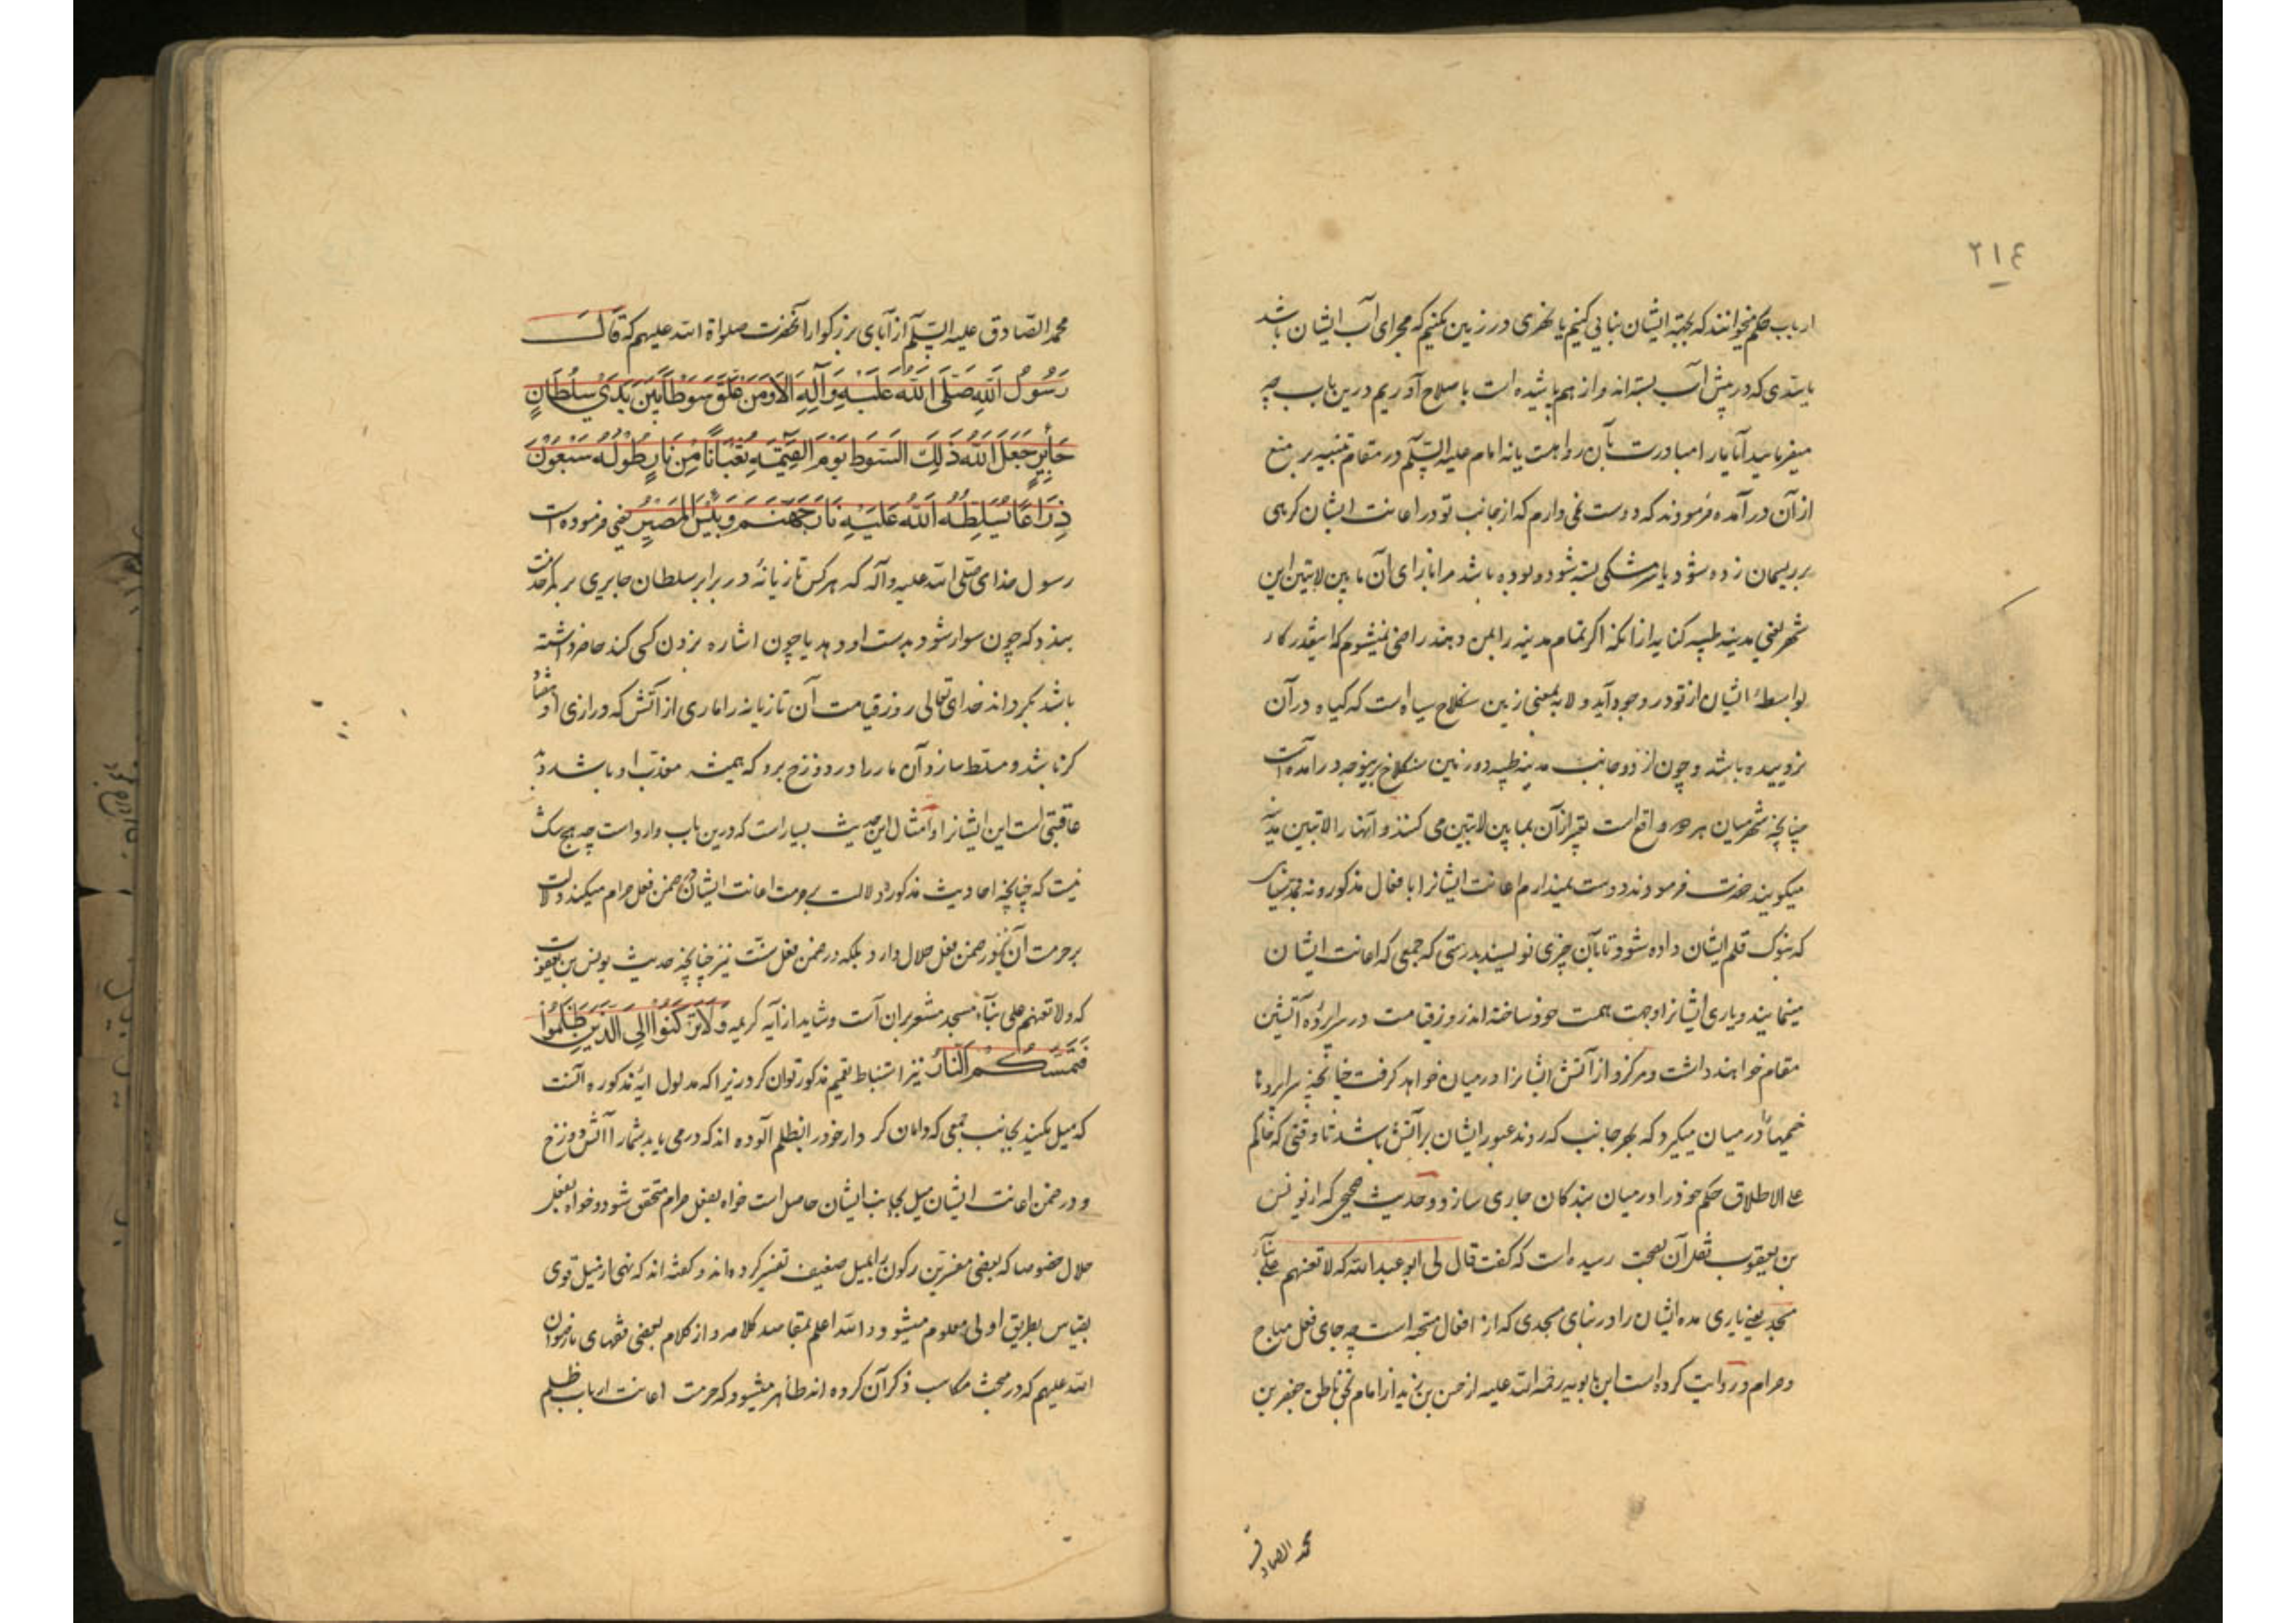 ٢١٤
ارباب حکم میخوانند که بجهة ایشان بنایی کنیم یا نهری در زمین بکنیم که مجرای آب ایشان باشد
یا سدی که در پیش آب بسته اند و از هم پاشیده است باصلاح آوریم درین باب چه
میفرمایید آیا ما را مبادرت بآن رواهست یا نه امام علیه السلم در مقام تنبیه بر منع
از آن در آمده فرمودند که دوست نمی دارم که از جانب تو در اعانت ایشان گرهی
بر ریسمان زده شود یا سر مشکی بسته شود و بوده باشد مرا بازای آن ما بین لابتین این
شهر یعنی مدینه طیبه کنایه از آنکه اگر تمام مدینه را بمن دهند راضی نمیشوم که اینقدر کار
بواسطهٔ ایشان از تو در وجود آید و لابه بمعنی زمین سنگلاخ سیاه است که گیاه در آن
نروییده باشد و چون از دو جانب مدینه طیبه دو زمین سنگلاخ برینوجه در آمده است
چنانچه شهر میان هر دو واقع است تعبیر از آن بما بین لابتین می کنند و آنها را لابتین مدینه
میکویند حضرت فرمودند دوست نمیدارم اعانت ایشانرا بافعال مذکور و نه بمد سیاهی
که بنوک قلم ایشان داده شود تا بآن چیزی نویسند بدرستی که جمعی که اعانت ایشان
مینمایند و یاری ایشانرا وجهت همت خود ساخته اند روز قیامت در سراپردهٔ آتشین
مقام خواهند داشت و مرکزو از آتش ایشانرا در میان خواهد گرفت چنانچه سراپردها
خیمها را در میان میگیرد که بهر جانب که روند عبور ایشان بر آتش باشد تا وقتی که حاکم
علی الاطلاق حکم خود را در میان بندکان جاری سازد و حدیث صحیحی که از یونس
بن یعقوب نقل آن بصحت رسیده است که گفت قال لی ابو عبدالله که لا تعنهم علی بنآء
مسجد یعنی یاری مده ایشان را در بنای مسجدی که از افعال مستحبه است چه جای فعل مباح
و حرام و روایت کرده است ابن بابویه رحمه الله علیه از حسن بن زید از امام بحق ناطق جعفر بن
محمد الصادق
محمد الصادق علیه السلم از آبای بزرکوار آنحضرت صلواة الله علیهم که قَالَ
رَسُولُ اللّٰهِ صَلَّی اللّٰهُ عَلَیْهِ وَآلِهِ اَلاٰ وَمَنْ عَلَّقَ سَوْطاً بَیْنَ یَدَیْ سُلْطَانٍ
جَایِرٍ جَعَلَ اللّٰهُ ذٰلِکَ السَّوْطَ یَوْمَ الْقِیٰمَةِ ثُعْبَانًا مِنْ نَارٍ طُوْلُهُ سَبْعُوْنَ
ذِرَاعًا یُسَلِّطُهُ اللّٰهُ عَلَیْهِ نَارَ جَهَنَّمَ وَبِئْسَ الْمَصِیْرُ یعنی فرموده است
رسول خدای صلی الله علیه و آله که هر کس تازیانهٔ در برابر سلطان جایری بر کمر خدمت
بندد که چون سوار شود بدست او دهد یا چون اشاره بزدن کسی کند حاضر داشته
باشد بگرداند خدای تعالی روز قیامت آن تازیانه را ماری از آتش که درازی او هفتاد
کز باشد و مسلط سازد آن مار را در دوزخ برو که همیشه معذب او باشد و بد
عاقبتی است این ایشانرا و امثال این حدیث بسیار است که درین باب وارد است چه هیچ شک
نیست که چنانچه احادیث مذکوره دلالت بر حرمت اعانت ایشان در ضمن فعل حرام میکند دلالت
بر حرمت آن در ضمن فعل حلال دارد بلکه در ضمن فعل سنت نیز چنانچه حدیث یونس بن یعقوب
که و لا تعنهم علی بنآء مسجد مشعر بر آن است و شاید از آیه کریمه وَلاٰ تَرْکَنُوْا اِلَی الَّذِیْنَ ظَلَمُوْا
فَتَمَسَّکُمُ النَّارُ نیز استنباط تعمیم مذکور توان کرد زیرا که مدلول ایهٔ مذکوره آنست
که میل مکنید بجانب جمعی که دامان کردار خود را بظلم آلوده اند که در می یابد شما را آتش دوزخ
و در ضمن اعانت ایشان میل بجانب ایشان حاصل است خواه بفعل حرام متحقق شود و خواه بفعل
حلال خصوصا که بعضی مفسرین رکون را بمیل ضعیف تفسیر کرده اند و گفته اند که نهی از میل قوی
بقیاس بطریق اولی معلوم میشود و الله اعلم بمقاصد کلامه و از کلام بعضی فقهای ما رضوان
الله علیهم که در مبحث مکاسب ذکر آن کرده اند ظاهر میشود که حرمت اعانت ارباب ظلم